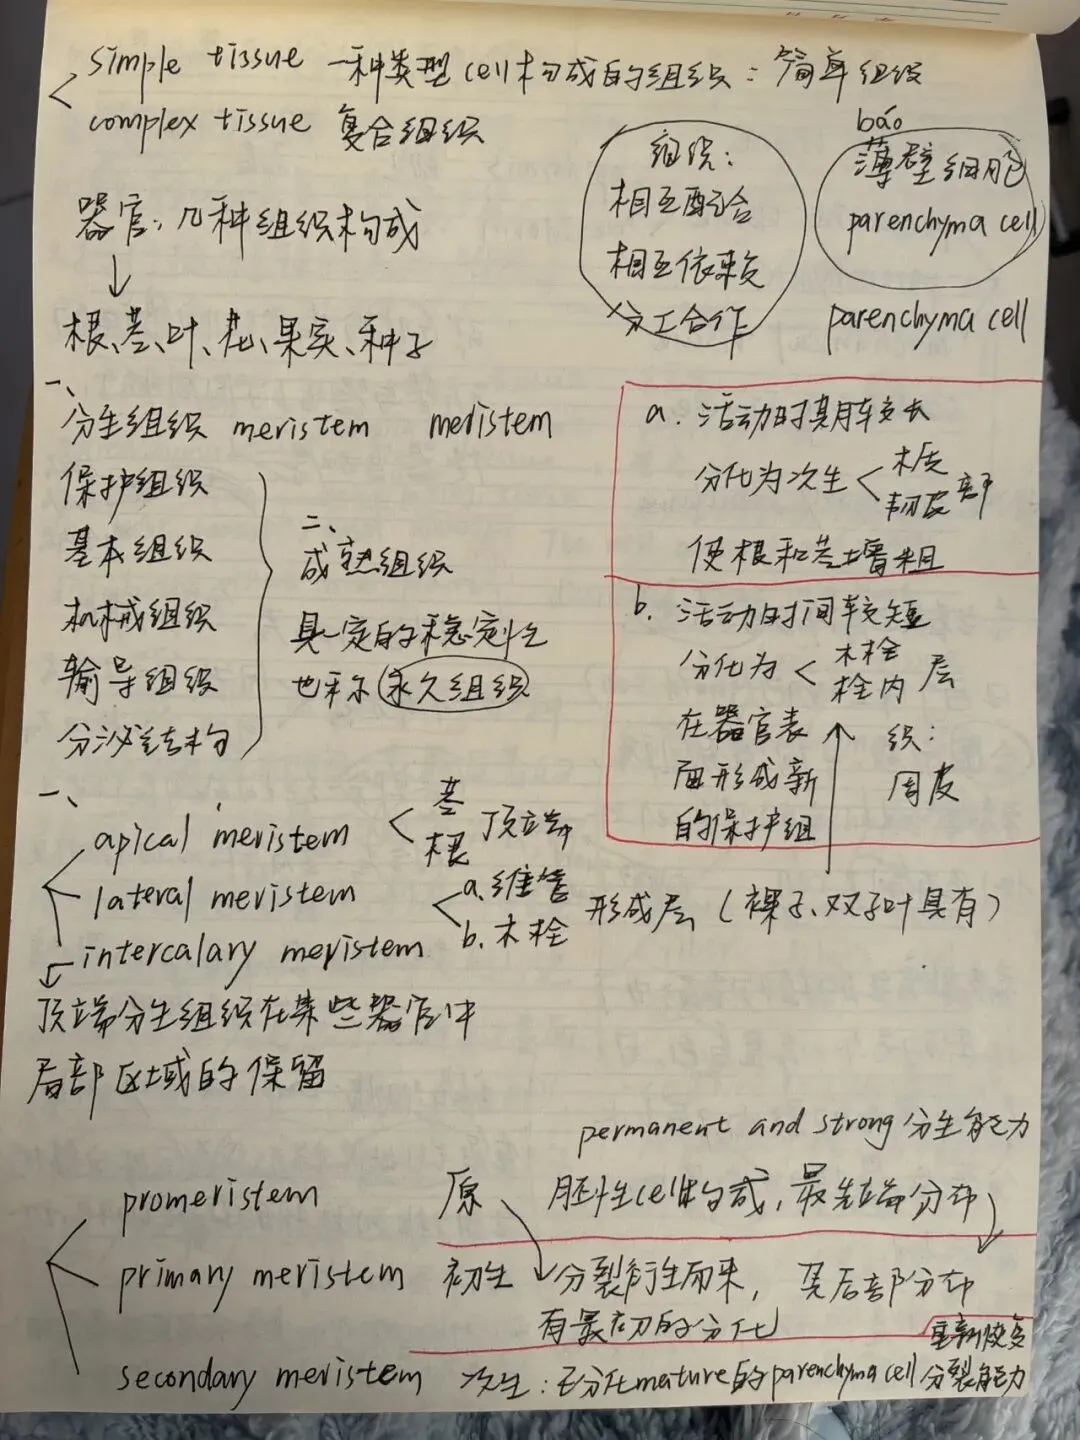 simple tissue 一种类型cell构成的组织：简单组织
complex tissue 复合组织
组织：
相互配合
相互依赖
分工合作
báo
薄壁细胞
parenchyma cell
parenchyma cell
器官：几种组织构成
↓
根、茎、叶、花、果实、种子
一、
分生组织 meristem meristem
保护组织
基本组织
机械组织
输导组织
分泌结构
二、
成熟组织
具一定的稳定性
也称永久组织
a. 活动时期较长
分化为次生<木质
韧皮部
使根和茎增粗
b. 活动时间较短
分化为<木栓
栓内 层
在器官表
面形成新
的保护组
织：
周皮
一、
apical meristem <茎
根 顶端
lateral meristem <a.维管
b.木栓 形成层（裸子、双子叶具有）
intercalary meristem
顶端分生组织在某些器官中
局部区域的保留
permanent and strong 分生能力
promeristem 原 胚性cell构成，最先端分布
primary meristem 初生 分裂衍生而来，其后部分布
有最初的分化
重新恢复
secondary meristem 次生：已分化mature的parenchyma cell分裂能力